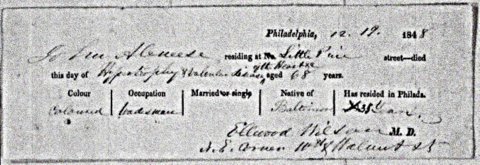 Philadelphia, 12. 19. 1848
residing at No. Little Pine street—died
this day of Hypertrophy & valvular disease of the Heart aged 68 years.
Colour Occupation Married or single Native of Has resided in Philada.
Coloured Baltimore 35 Years
Ellwood Wilson M. D.
N. E. Corner 10th & Walnut St